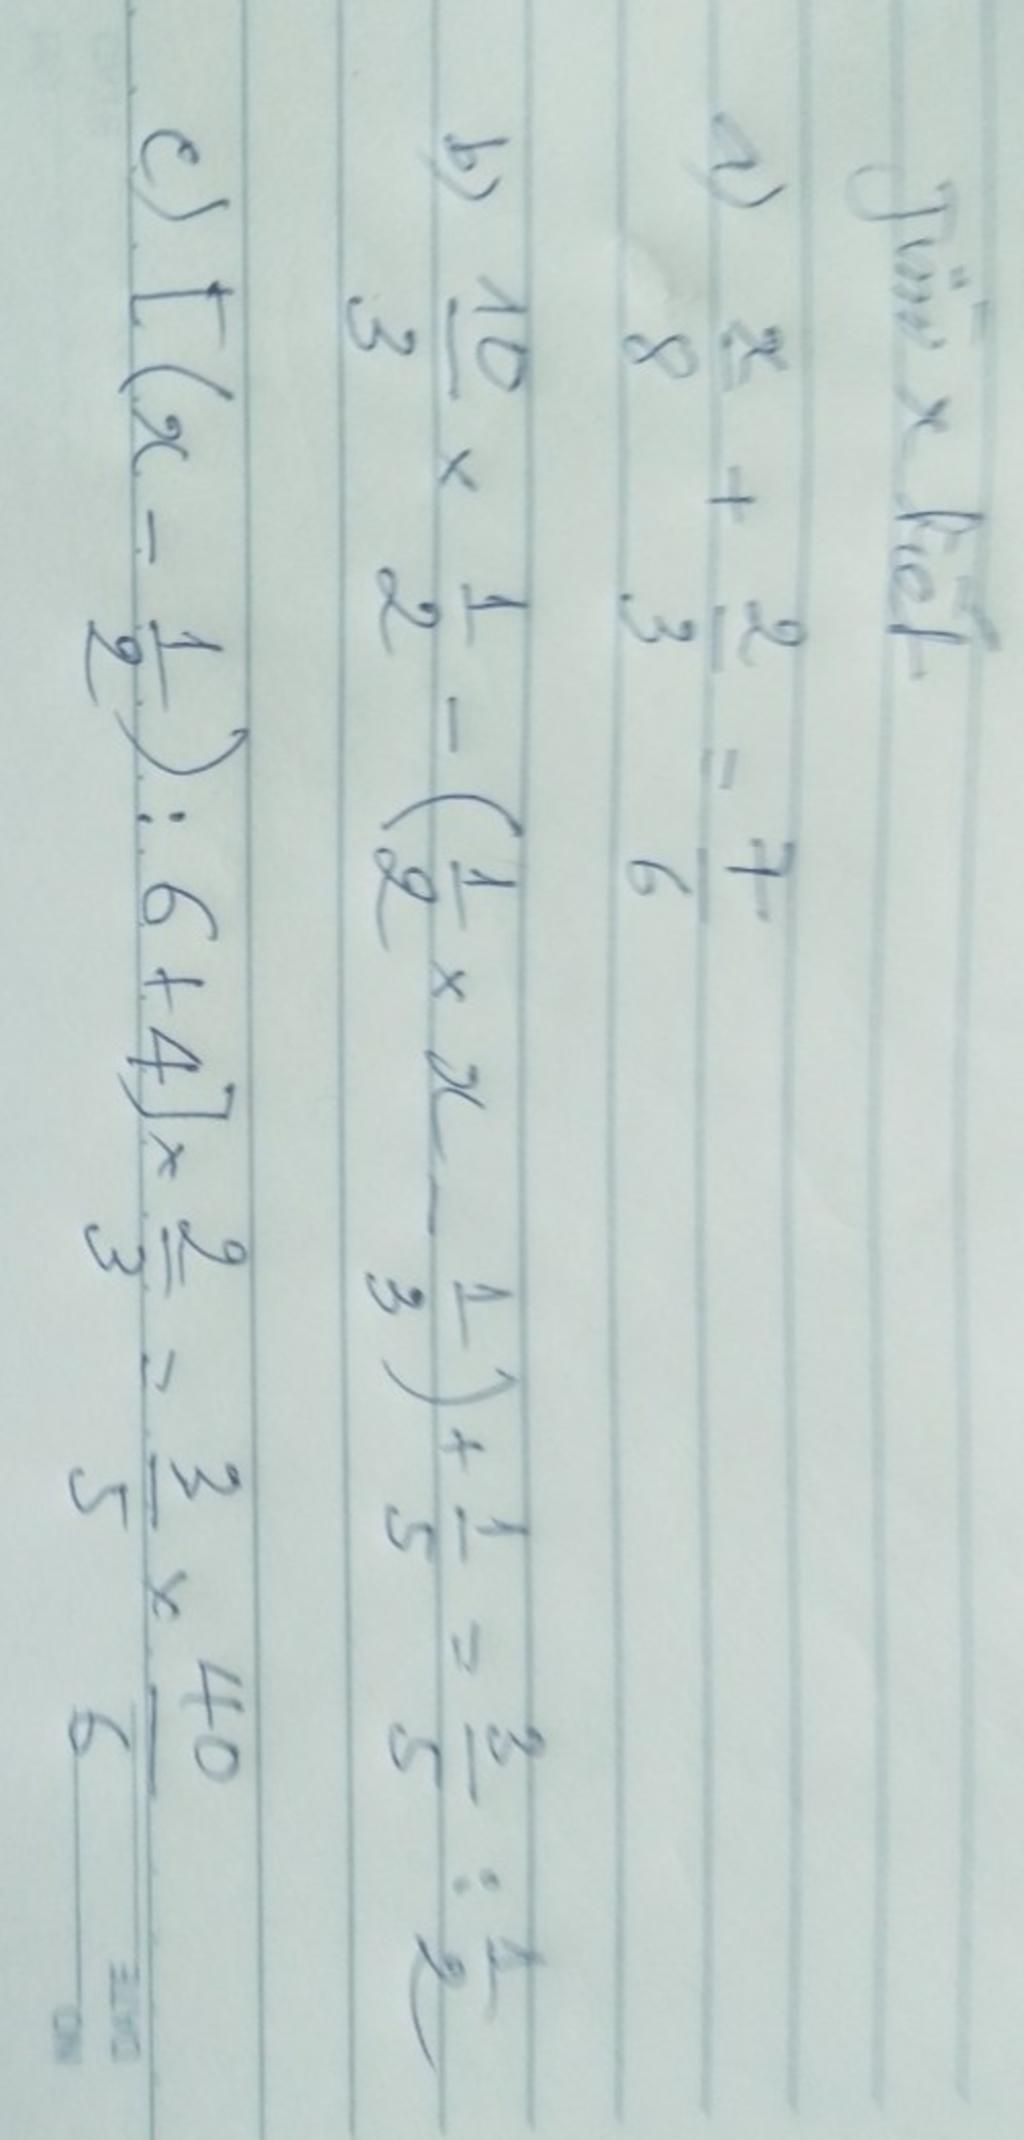 Tìm x biết
a) x/8 + 2/3 = 7/6
b) 10/3 × 1/2 - (1/2 × x - 1/3) + 1/5 = 3/5 : 1/2
c) [(x - 1/2) : 6 + 4] × 2/3 = 3/5 × 40/6
DATE
NO